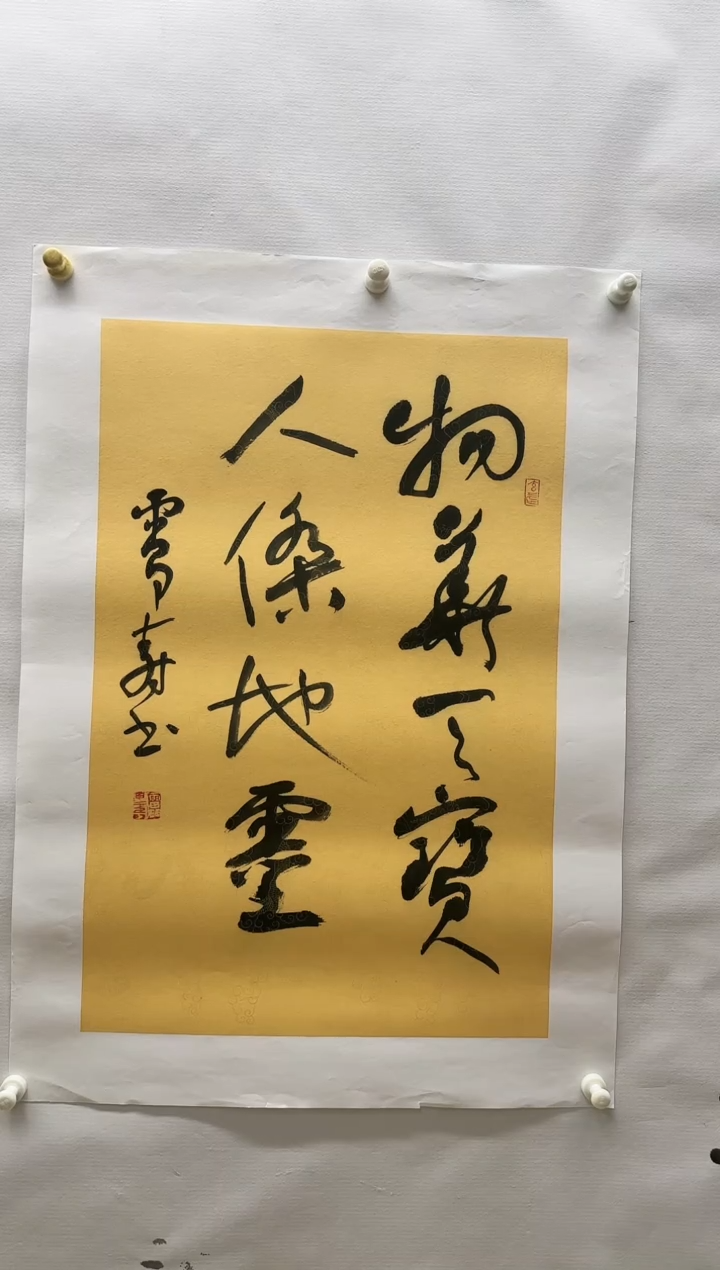 物華天寶
人傑地靈
壽書